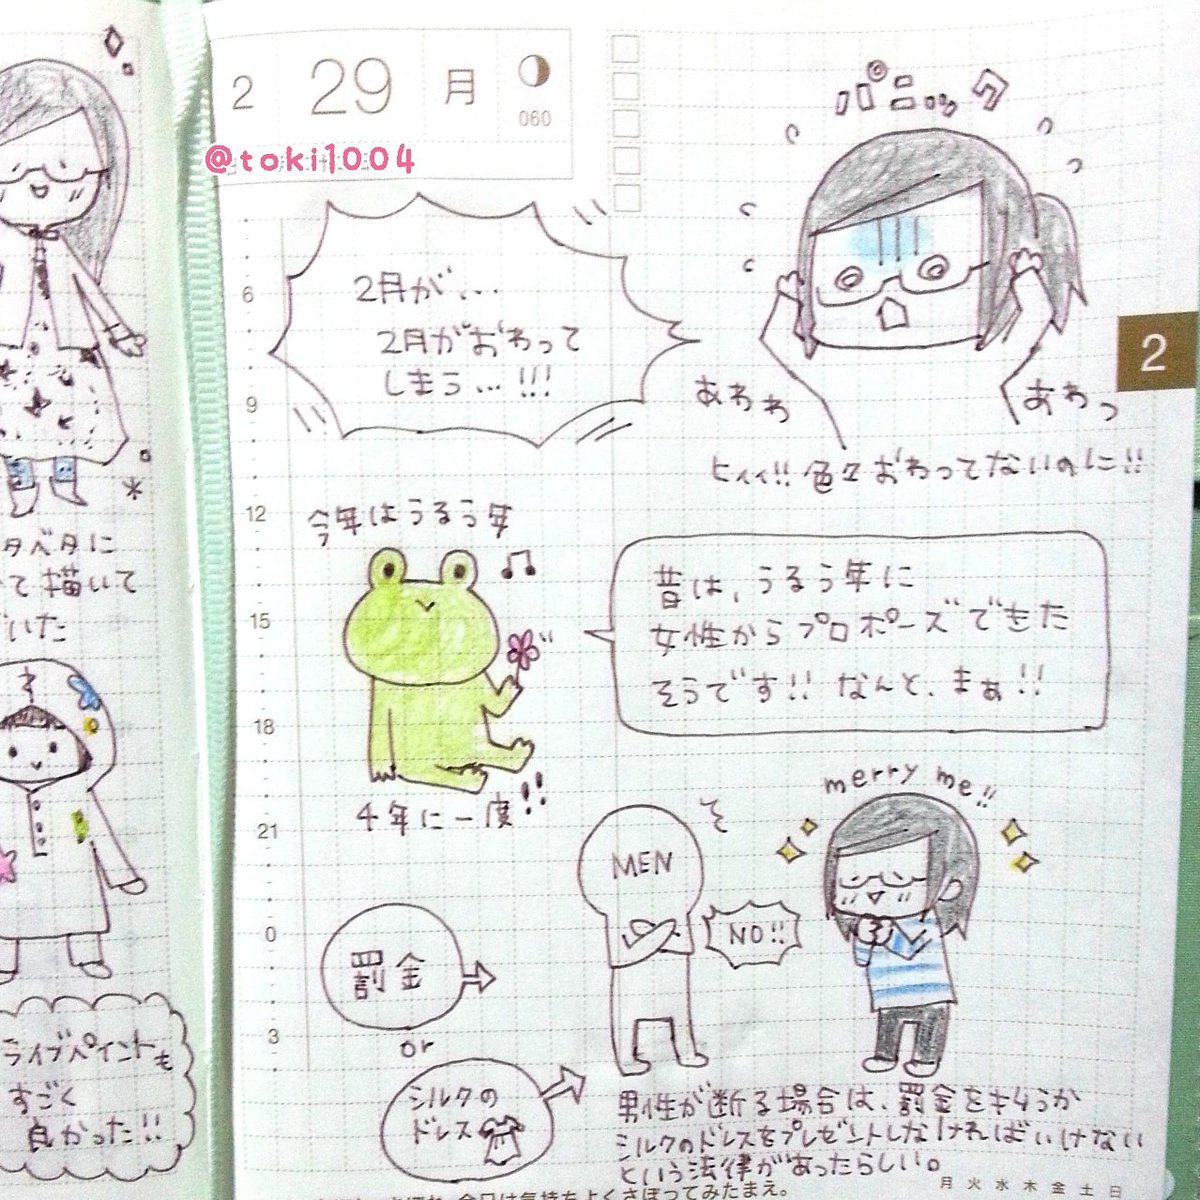 2 29 月
060
@toki1004
パニック
2月が…
2月がおわって
しまう…!!!
あわわ
あわっ
ヒィィ!!色々おわってないのに!!
2
今年はうるう年
4年に一度!!
昔は、うるう年に
女性からプロポーズできた
そうです!! なんと、まぁ!!
merry me!!
MEN
NO!!
罰金
or
シルクの
ドレス
男性が断る場合は、罰金をはらうか
シルクのドレスをプレゼントしなければいけない
という法律があったらしい。
6
9
12
15
18
21
0
3
月 火 水 木 金 土 日
今日は気持ちよくさぼってみたまえ。
タベタに
て描いて
いた
ライブペイントも
すごく
良かった!!